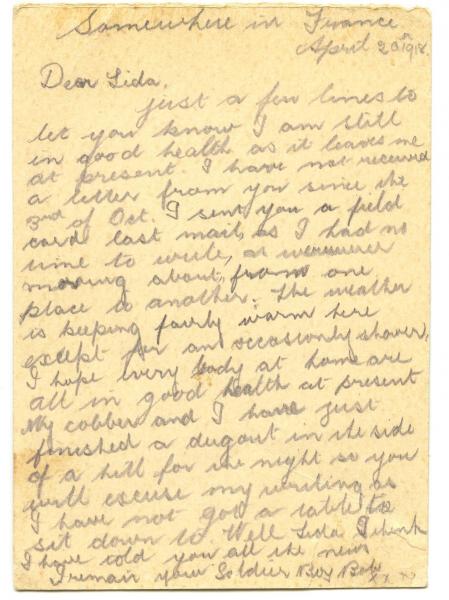 Somewhere in France
April 20th 1918.
Dear Lida,
just a few lines to
let you know I am still
in good health as it leaves me
at present. I have not received
a letter from you since the
3rd of Oct. I sent you a field
card last mail, as I had no
time to write, as
moving about, from one
place to another. The weather
is keeping fairly warm here
except for an occasionly shower,
I hope every body at home are
all in good health at present
My cobber and I have just
finished a dugout in the side
of a hill for the night so you
will excuse my writing as
I have not got a table to
sit down to. Well Lida I think
I have told you all the news
I remain your Soldier Boy
xx xx